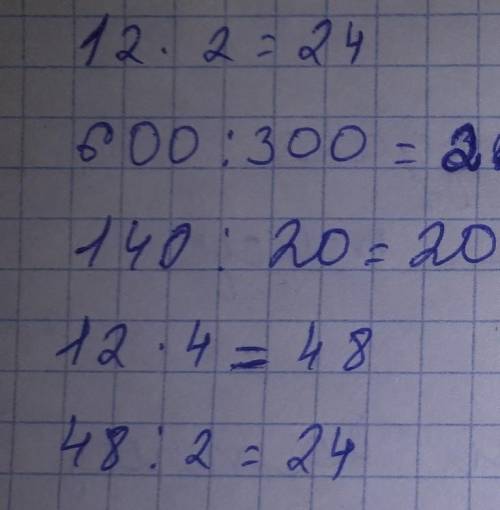 12 · 2 = 24
600 : 300 = 2
140 : 20 = 20
12 · 4 = 48
48 : 2 = 24